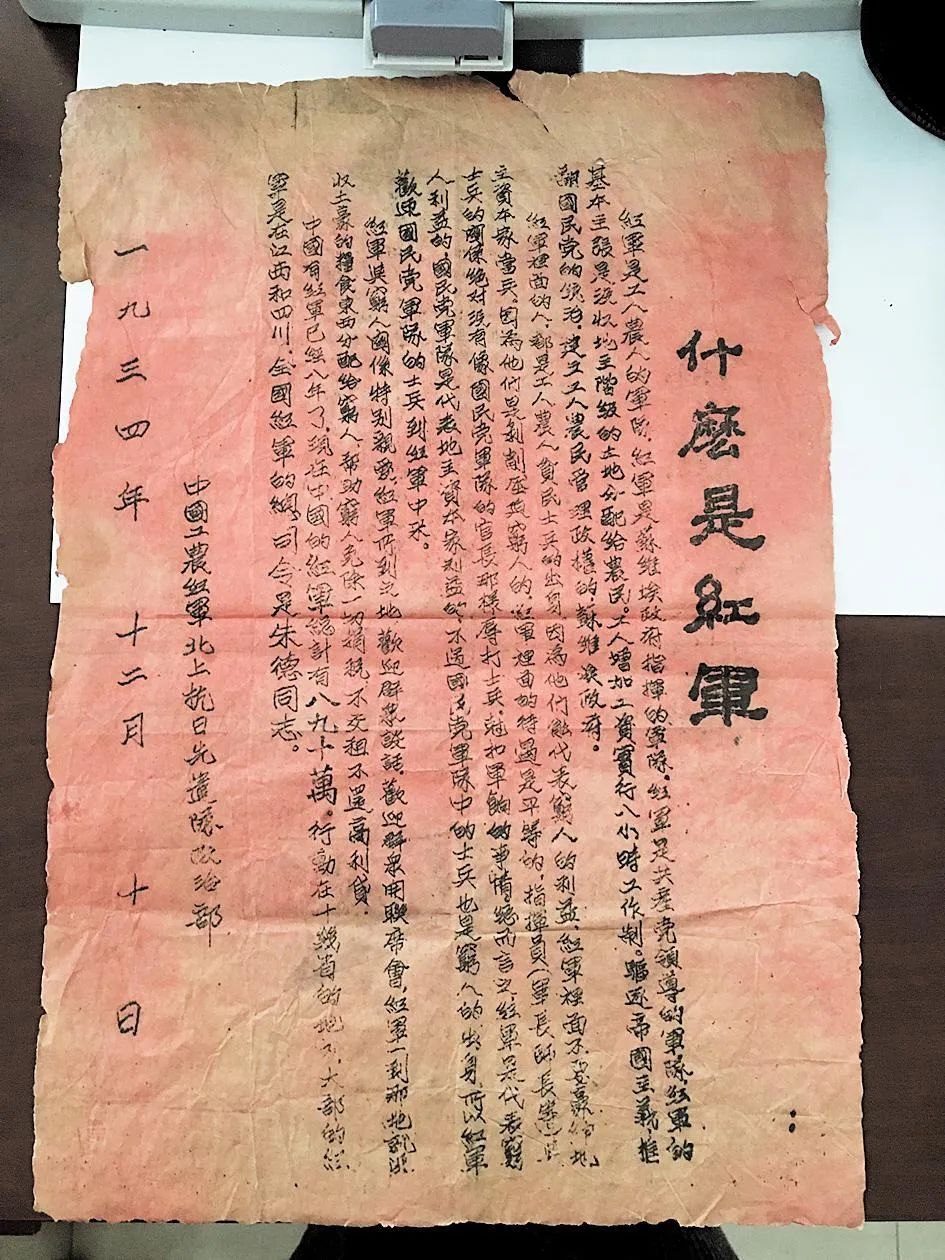 什麽是紅軍
紅軍是工人農人的軍隊，紅軍是蘇維埃政府指揮的軍隊，紅軍是共產党領導的軍隊，紅軍的
基本主張是沒收地主階級的土地分配給農民。工人增加工資實行八小時工作制。驅逐帝國主義，推
翻國民党的統治，建立工人農民管理政權的，蘇維埃政府。
紅軍裡面的人，都是工人農人貧民士兵的出身，因為他們能代表窮人的利益，紅軍裡面不要豪紳地
主資本家當兵，因為他們是剝削壓迫窮人的，紅軍裡面的待遇是平等的，指揮員（軍長師長
士兵的關係絕对沒有像國民党軍隊的官長那樣辱打士兵，尅扣軍餉的事情，總而言之，紅軍是代表窮
人利益的，國民党軍隊是代表地主資本家利益的，不過國民党軍隊中的士兵也是窮人的出身，所以紅軍
歡迎國民党軍隊的士兵到紅軍中來。
紅軍與窮人關係特别親密，紅軍所到之地歡迎群衆談話，歡迎群衆開聯席會，紅軍一到那地就沒
收土豪的糧食東西分配給窮人，帮助窮人免除一切捐稅不交租不還高利貸，
中國有紅軍已經八年了，現在中國的紅軍總計有八九十萬。行動在十幾省的地方，大部的紅
軍是在江西和四川，全國紅軍的總司令是朱德同志。
中國工農紅軍北上抗日先遣隊政治部
一九三四年十二月十日